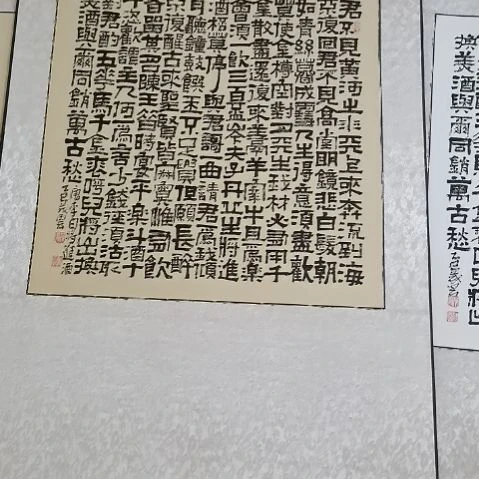 君不見黃河之水天上來奔流到海
不復回君不見高堂明鏡悲白髮朝
如青絲暮成雪人生得意須盡歡
莫使金樽空對月天生我材必有用千
金散盡還復來烹羊宰牛且為樂
會須一飲三百杯岑夫子丹丘生將進
酒杯莫停與君謌一曲請君為我傾
耳聽鐘鼓饌玉不足貴但願長醉
不復醒古來聖賢皆寂寞惟有飲
者留其名陳王昔時宴平樂斗酒十
千恣歡謔主人何為言少錢徑須沽取
對君酌五花馬千金裘呼兒將出換
美酒與爾同銷萬古愁
換美酒與爾同銷萬古愁